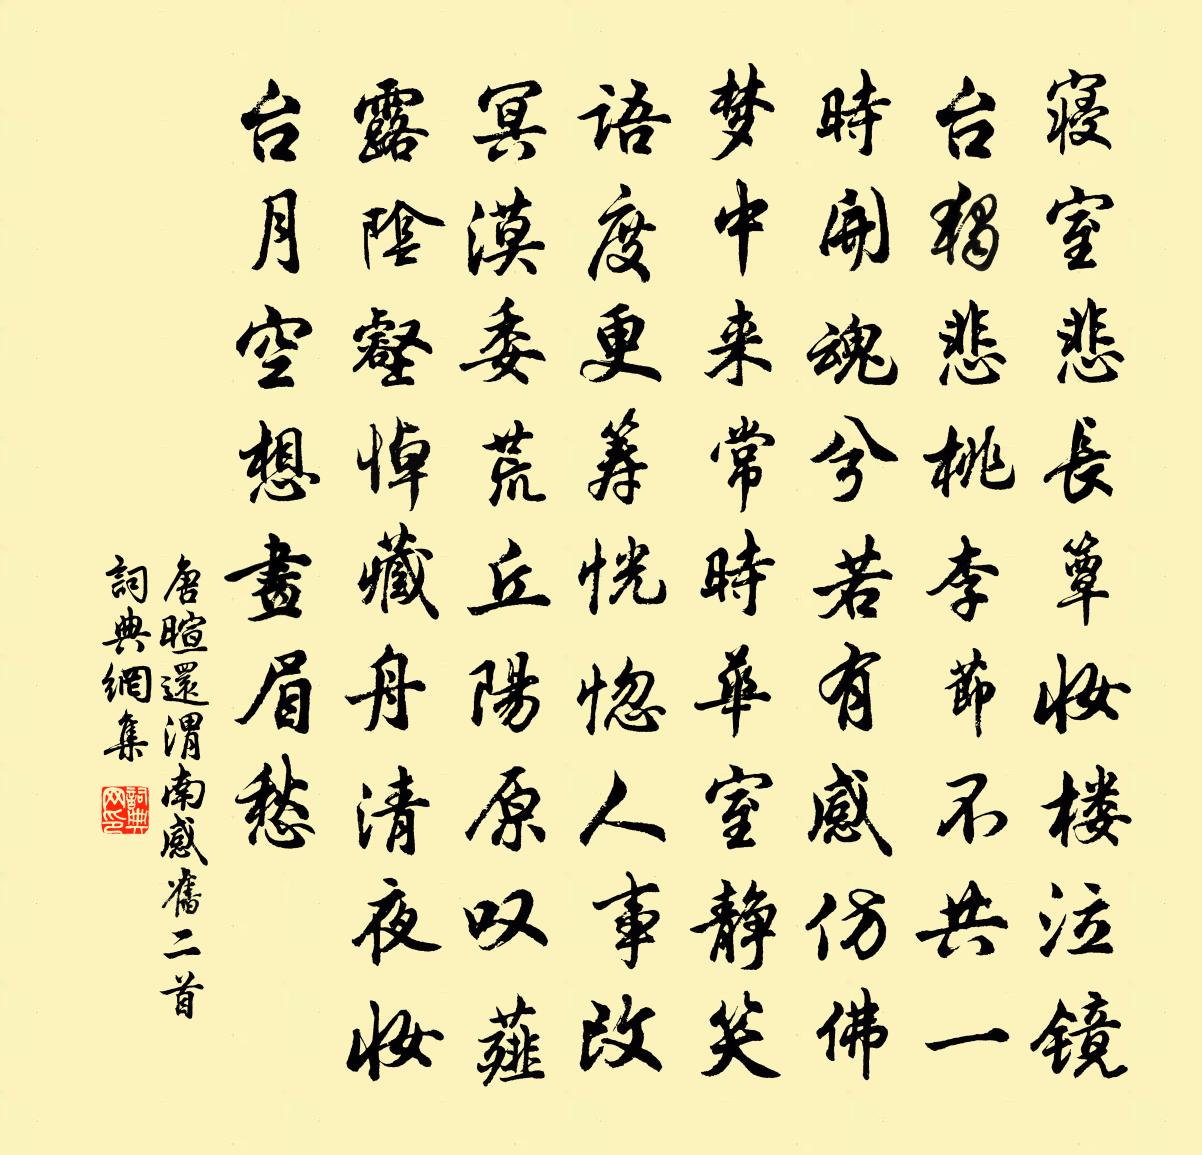 寝室悲長簟妆楼泣镜
台獨悲桃李節不共一
時開魂兮若有感仿佛
梦中来常時華室静笑
语度更筹恍惚人事改
冥漠委荒丘陽原叹薤
露陰壑悼藏舟清夜妆
台月空想畫眉愁
唐暄還渭南感舊二首
詞典網集
詞典网印